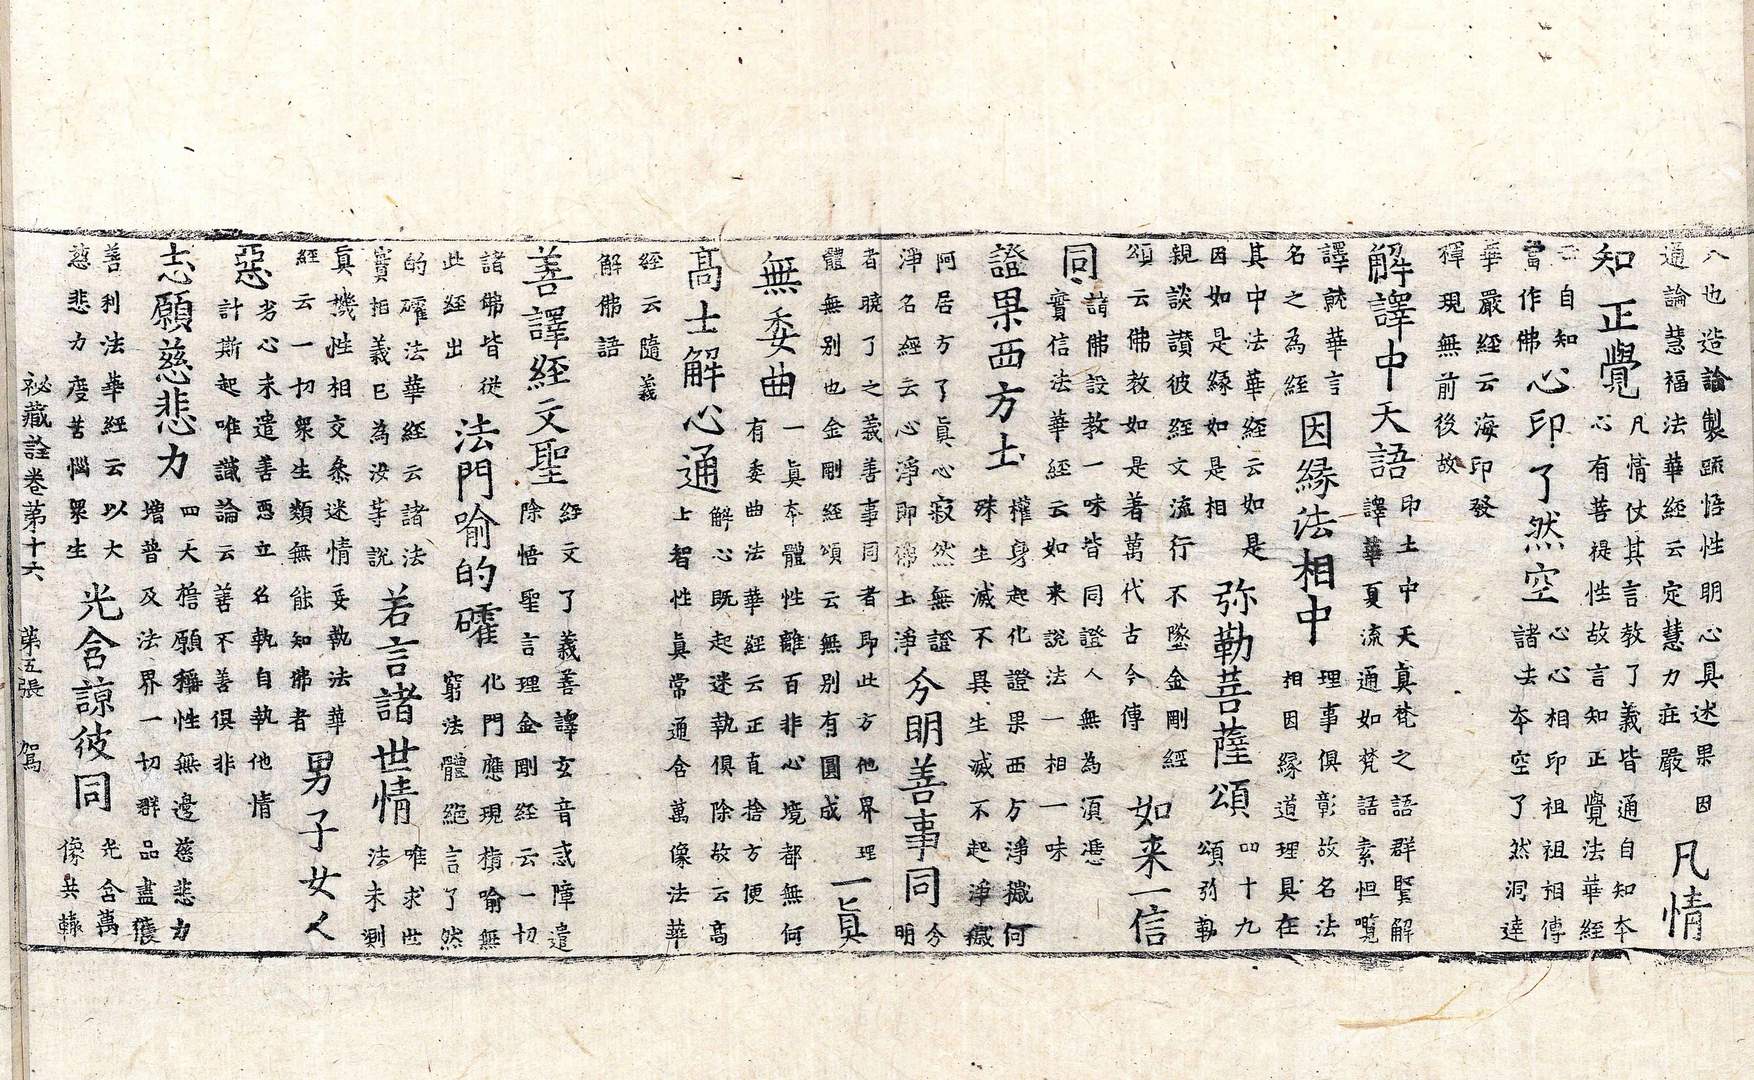 人也造論製䟽悟性明心具述果因
通論慧福法華經云定慧力莊嚴
凡情
知正覺
凡情仗其言教了義皆通自知本
心有菩提性故言知正覺法華經
云自知
當作佛
心印了然空
心心相印祖祖相傳
諸法本空了然洞達
華嚴經云海印發
禪現無前後故
解譯中天語
印土中天真梵之語群賢解
譯華夏流通如梵語素怛䌫
譯就華言
名之為經
因緣法相中
理事俱彰故名法
相因緣道理具在
其中法華經云如是
因如是緣如是相
弥勒菩薩頌
四十九
頌弥勒
親談讚彼經文流行不墜金剛經
頌云佛教如是着萬代古今傳
如来一信
同
諸佛設教一味皆同證人無為湏憑
實信法華經云如来說法一相一味
證果西方土
權身起化證果西方淨穢何
殊生滅不異生滅不起淨穢
阿居方了真心寂然無證
淨名經云心淨即佛土淨
分明善事同
分
明
者曉了之義善事同者即此方他界理
體無別也金剛經頌云無別有圓成
一真
無委曲
一真本體性離百非心境都無何
有委曲法華經云正直捨方便
高士解心通
解心既起迷執俱除故云高
上智性真常通含萬像法華
經云隨義
解佛語
善譯經文聖
經文了義善譯玄音惑障遣
除悟聖言理金剛經云一切
諸佛皆從
此經出
法門喻的礭
化門應現撗喻無
窮法體絕言了然
的礭法華經云諸法
實相義已為汝等說
若言諸世情
唯求世
法未測
真機性相交叅迷情妄執法華
經云一切衆生類無能知佛者
男子女人
惡
劣心未遣善惡立名執自執他情
計斯起唯識論云善不善俱非
志願慈悲力
四天擔願稱性無邊慈悲力
增普及法界一切群品盡獲
善利法華經云以大
慈悲力度苦惱衆生
光含諒彼同
光含萬
像共轍
秘藏詮卷第十六 第五張 駕